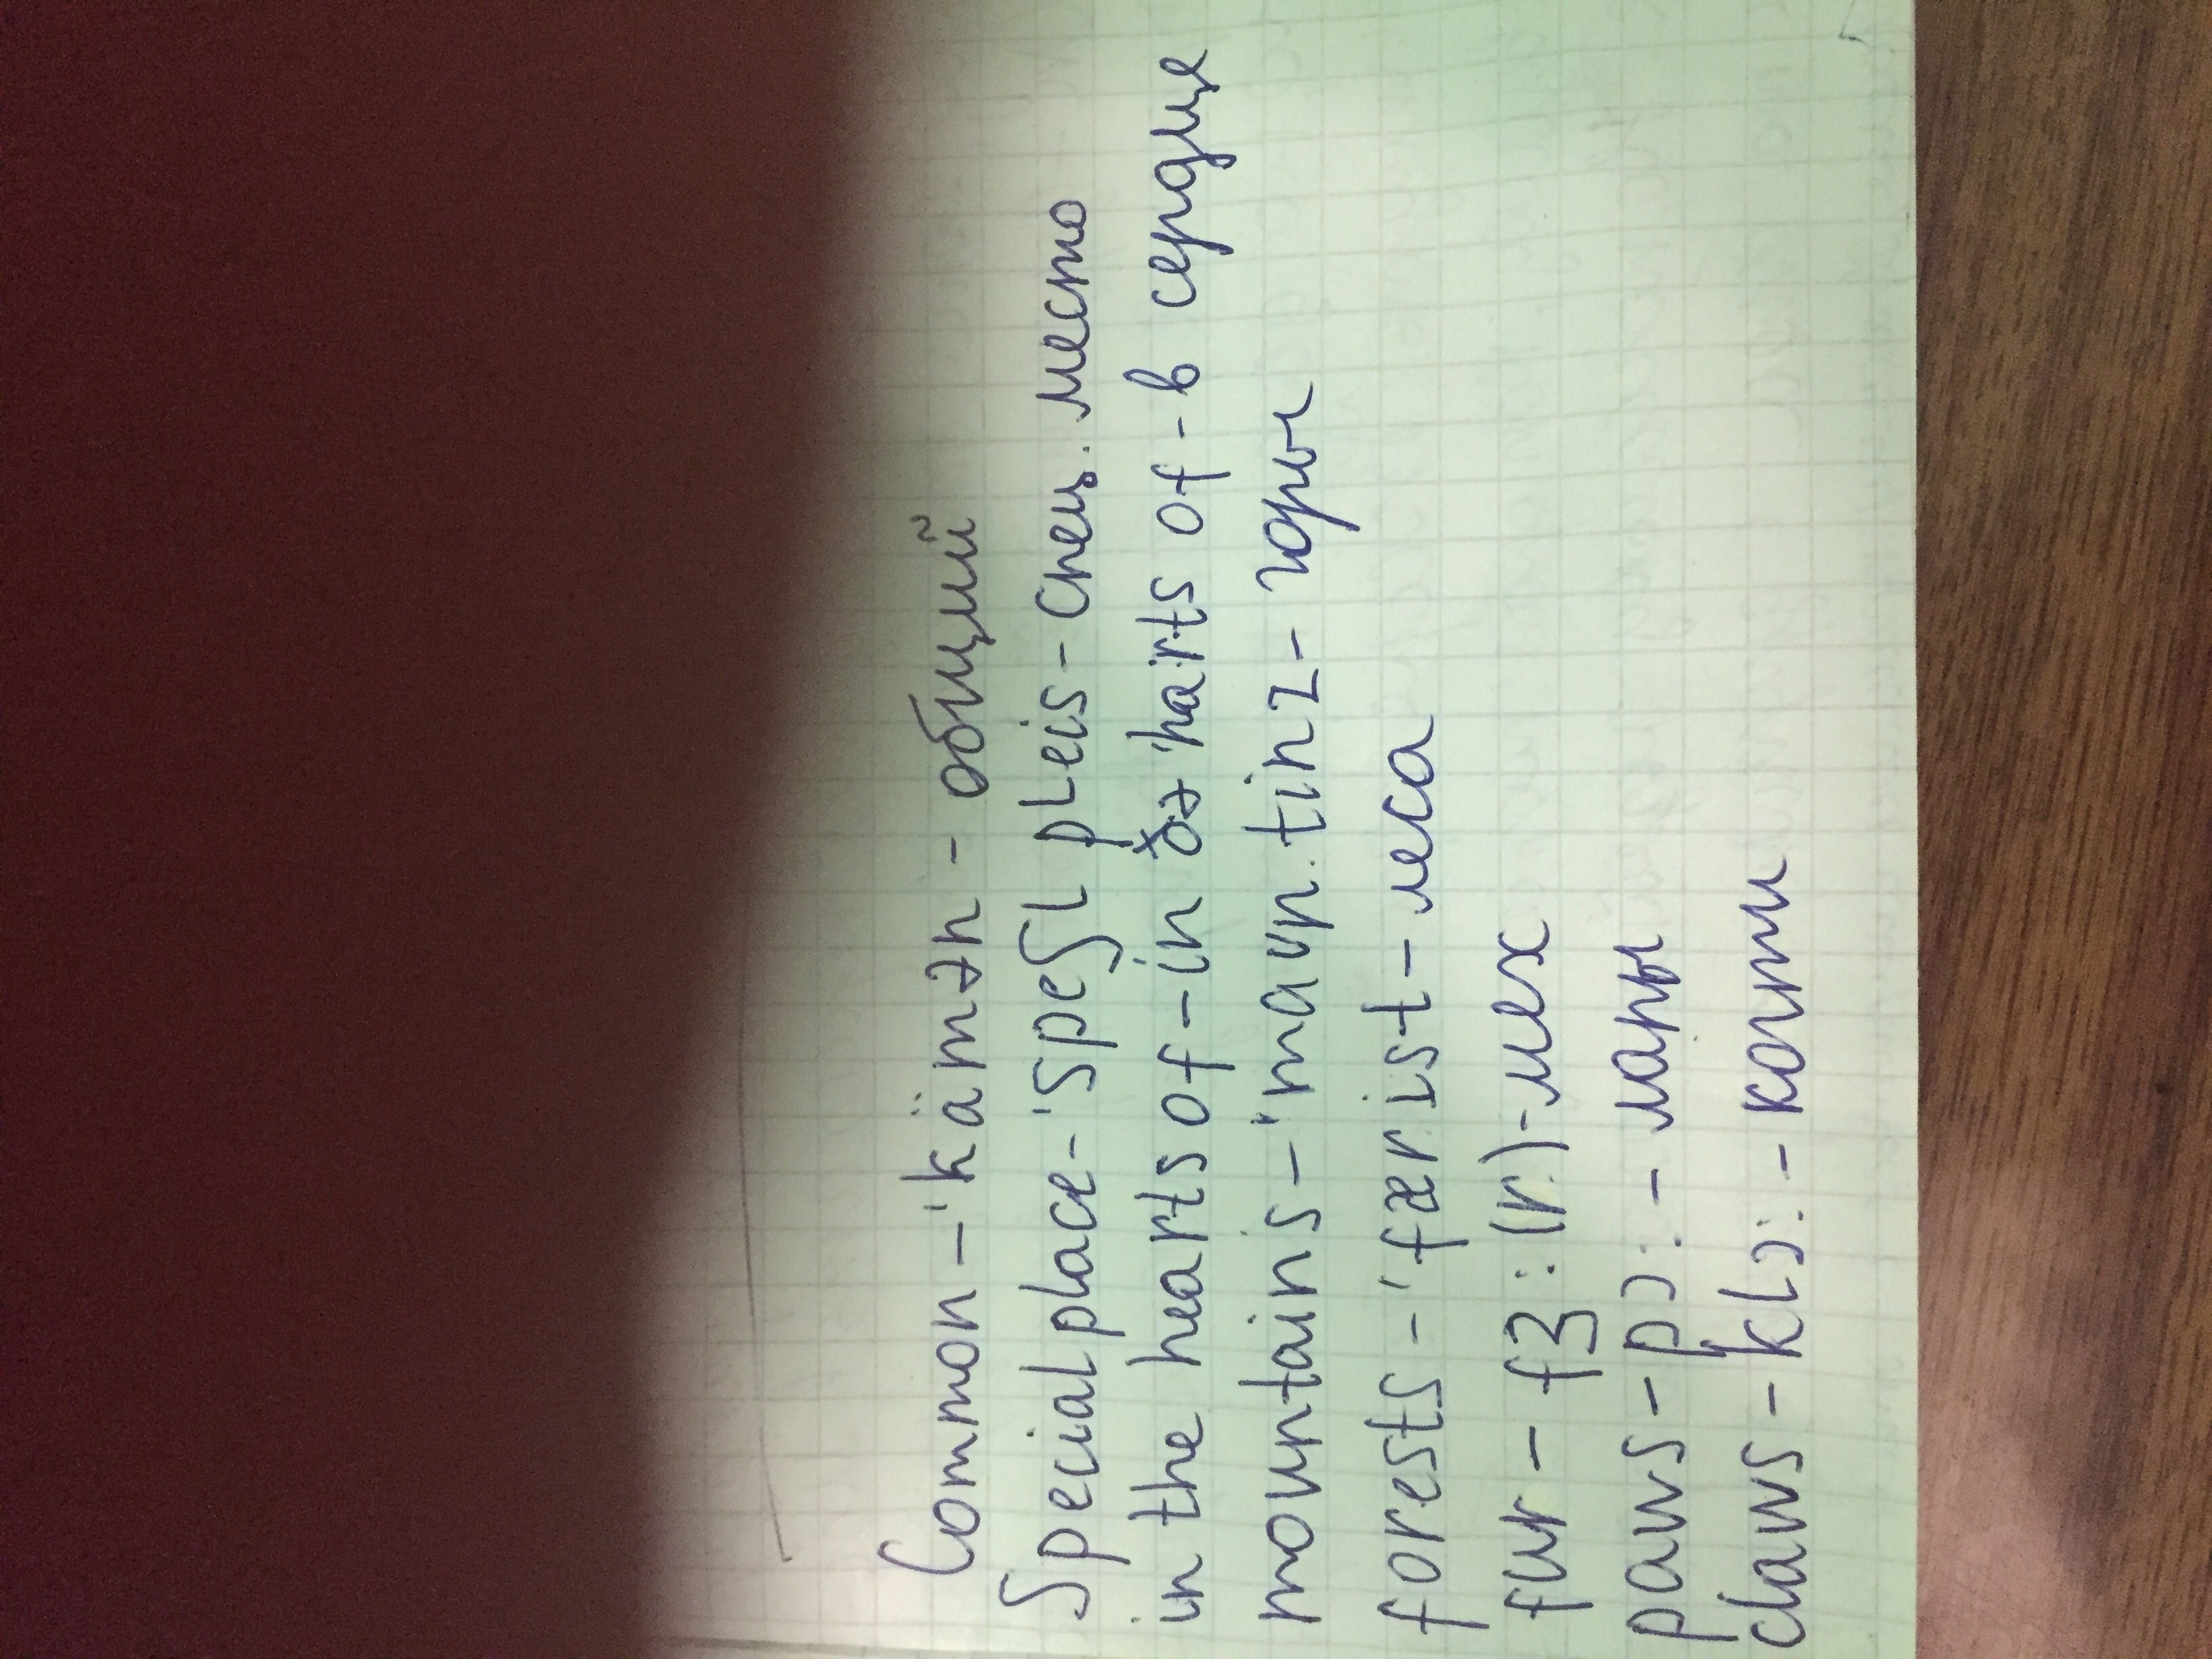 Common - 'kämən - общий
Special place - 'speʃl pleis - спец. место
in the hearts of - in ðə 'harts of - в сердце
mountains - 'maʊn.tinz - горы
forests - 'fær.ist - леса
fur - fɜ:(r) - мех
paws - pɔ: - лапы
claws - klɔ: - когти